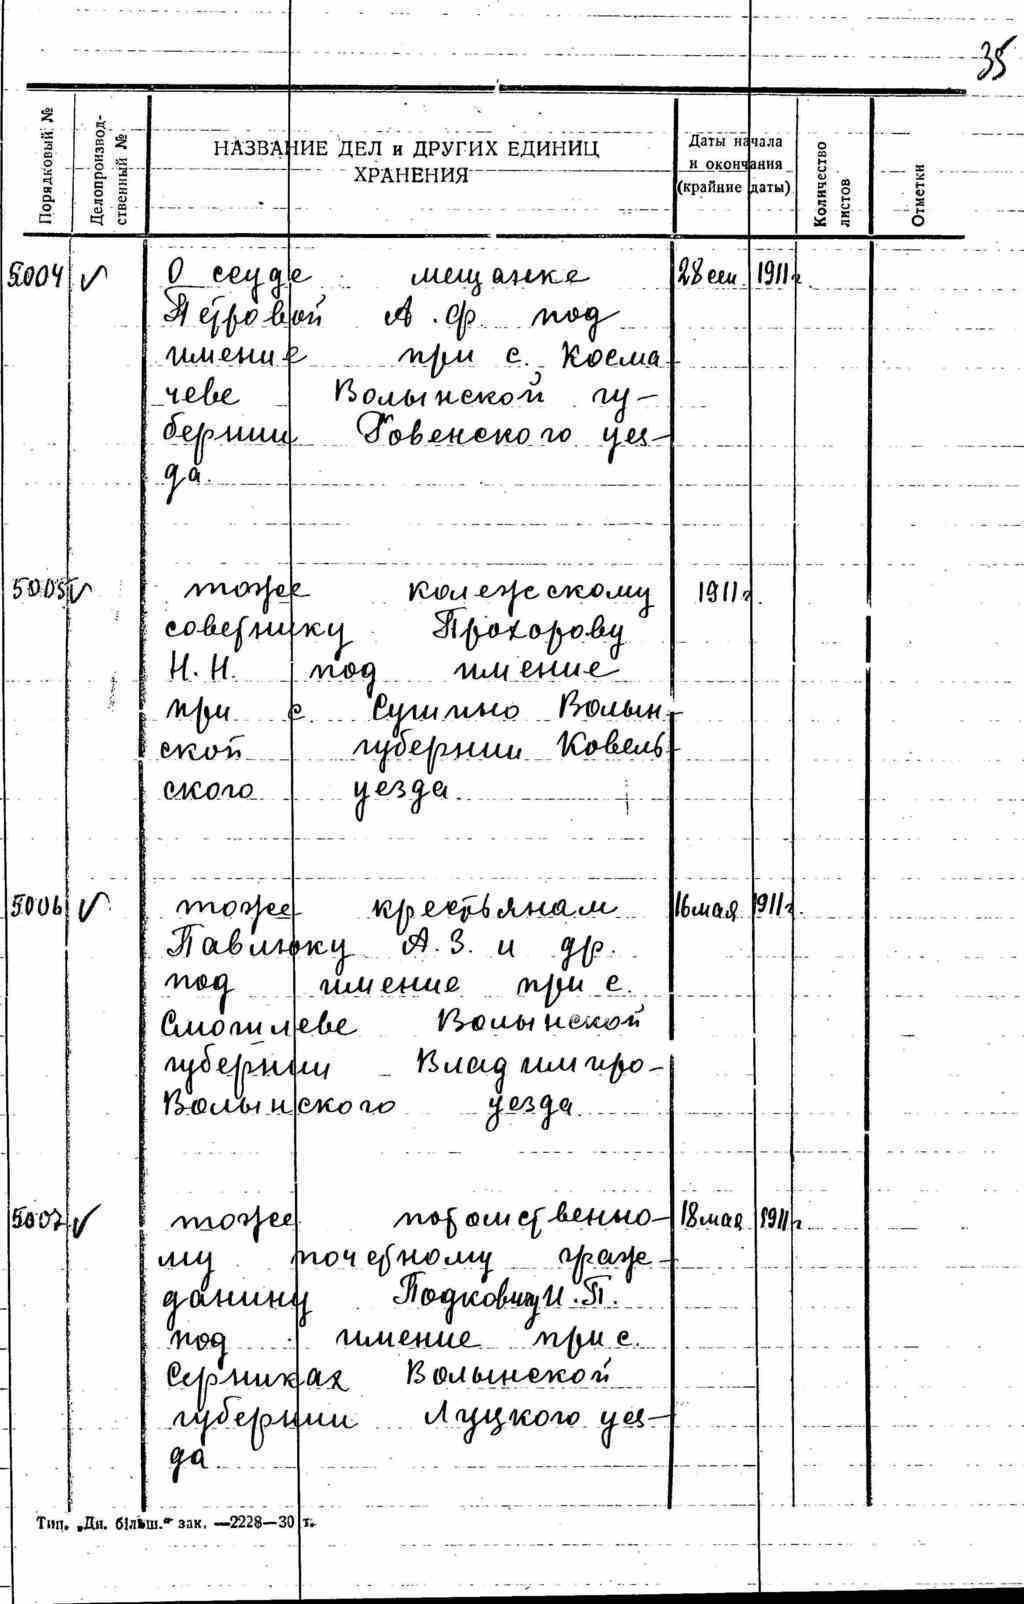 35
Порядковый №
Делопроизвод-
ственный №
НАЗВАНИЕ ДЕЛ и ДРУГИХ ЕДИНИЦ
ХРАНЕНИЯ
Даты начала
и окончания
(крайние даты)
Количество
листов
Отметки
5004 О ссуде мещанке 28 сен. 1911 г.
Петровой А. Ф. под
имение при с. Косма
чеве Волынской гу-
бернии Ровенского уез-
да.
5005 тоже колежскому 1911 г.
советнику Прохорову
Н. Н. под имение
при с. Волын
ской губернии Ковель
ского уезда
5006 тоже крестьянам 16 мая 1911 г.
Павлюку А. З. и др.
под имение при с.
Смогилеве Волынской
губернии Владимиро-
Волынского уезда
5007 тоже потомственно- 18 мая 1911 г.
му почетному граж-
данину И. П.
под имение при с.
Серниках Волынской
губернии Луцкого уез-
да
Тип. „Дн. більш.“ зак. —2228—30 т.